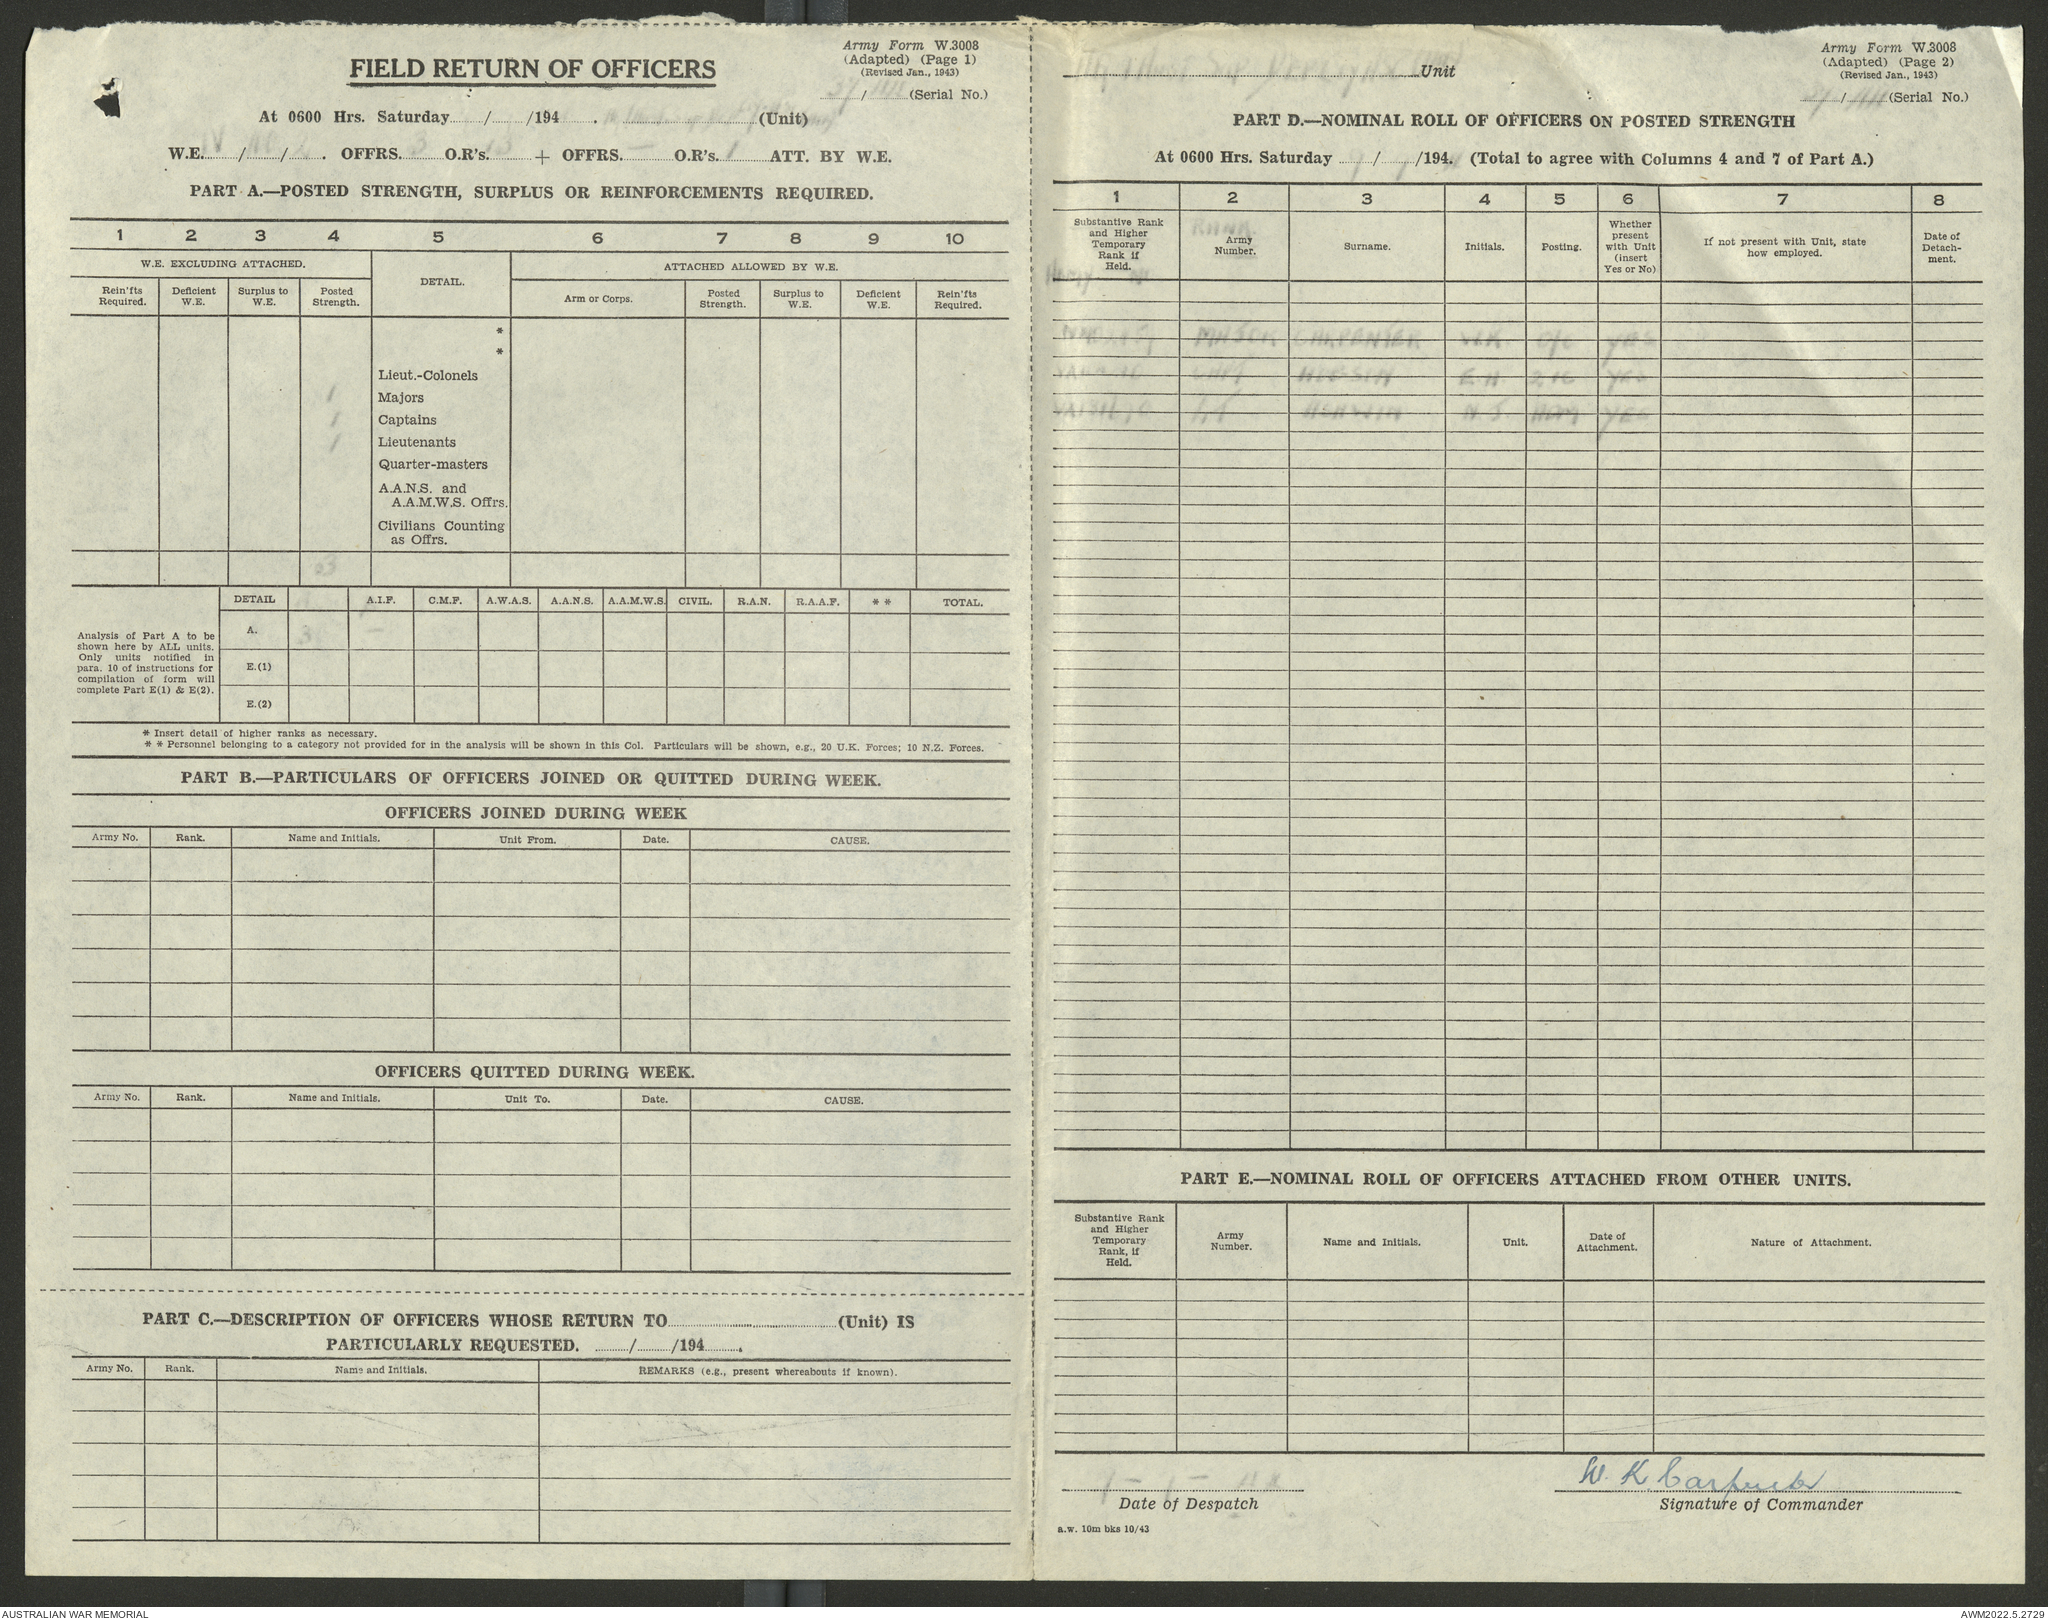 Army Form W.3008
(Adapted) (Page 1)
(Revised Jan., 1943)
FIELD RETURN OF OFFICERS
37/ (Serial No.)
At 0600 Hrs. Saturday / /194 . (Unit)
W.E. IV / / 2 . OFFRS. 3 O.R's. 13 + OFFRS. — O.R's. 1 ATT. BY W.E.
PART A.—POSTED STRENGTH, SURPLUS OR REINFORCEMENTS REQUIRED.
1 2 3 4 5 6 7 8 9 10
W.E. EXCLUDING ATTACHED. DETAIL. ATTACHED ALLOWED BY W.E.
Rein'fts Required. Deficient W.E. Surplus to W.E. Posted Strength. Arm or Corps. Posted Strength. Surplus to W.E. Deficient W.E. Rein'fts Required.
*
*
Lieut.-Colonels
1 Majors
1 Captains
1 Lieutenants
Quarter-masters
A.A.N.S. and
A.A.M.W.S. Offrs.
Civilians Counting
as Offrs.
3
DETAIL A.I.F. C.M.F. A.W.A.S. A.A.N.S. A.A.M.W.S. CIVIL. R.A.N. R.A.A.F. * * TOTAL.
A. 3 —
E.(1)
E.(2)
Analysis of Part A to be
shown here by ALL units.
Only units notified in
para. 10 of instructions for
compilation of form will
complete Part E(1) & E(2).
* Insert detail of higher ranks as necessary.
* * Personnel belonging to a category not provided for in the analysis will be shown in this Col. Particulars will be shown, e.g., 20 U.K. Forces; 10 N.Z. Forces.
PART B.—PARTICULARS OF OFFICERS JOINED OR QUITTED DURING WEEK.
OFFICERS JOINED DURING WEEK
Army No. Rank. Name and Initials. Unit From. Date. CAUSE.
OFFICERS QUITTED DURING WEEK.
Army No. Rank. Name and Initials. Unit To. Date. CAUSE.
PART C.—DESCRIPTION OF OFFICERS WHOSE RETURN TO (Unit) IS
PARTICULARLY REQUESTED. / /194 .
Army No. Rank. Name and Initials. REMARKS (e.g., present whereabouts if known).
Army Form W.3008
(Adapted) (Page 2)
(Revised Jan., 1943)
Unit
37/ (Serial No.)
PART D.—NOMINAL ROLL OF OFFICERS ON POSTED STRENGTH
At 0600 Hrs. Saturday / /194 . (Total to agree with Columns 4 and 7 of Part A.)
1 2 3 4 5 6 7 8
Substantive Rank and Higher Temporary Rank if Held. RANK Army Number. Surname. Initials. Posting. Whether present with Unit (insert Yes or No) If not present with Unit, state how employed. Date of Detach-ment.
Army
MAJOR CARPENTER W.K. O/C YES
CAPT E.H. 2 IC YES
LT ASHWIN N.J. ADM YES
PART E.—NOMINAL ROLL OF OFFICERS ATTACHED FROM OTHER UNITS.
Substantive Rank and Higher Temporary Rank, if Held. Army Number. Name and Initials. Unit. Date of Attachment. Nature of Attachment.
W. K. Carpenter
Date of Despatch Signature of Commander
a.w. 10m bks 10/43
AUSTRALIAN WAR MEMORIAL AWM2022.5.2729